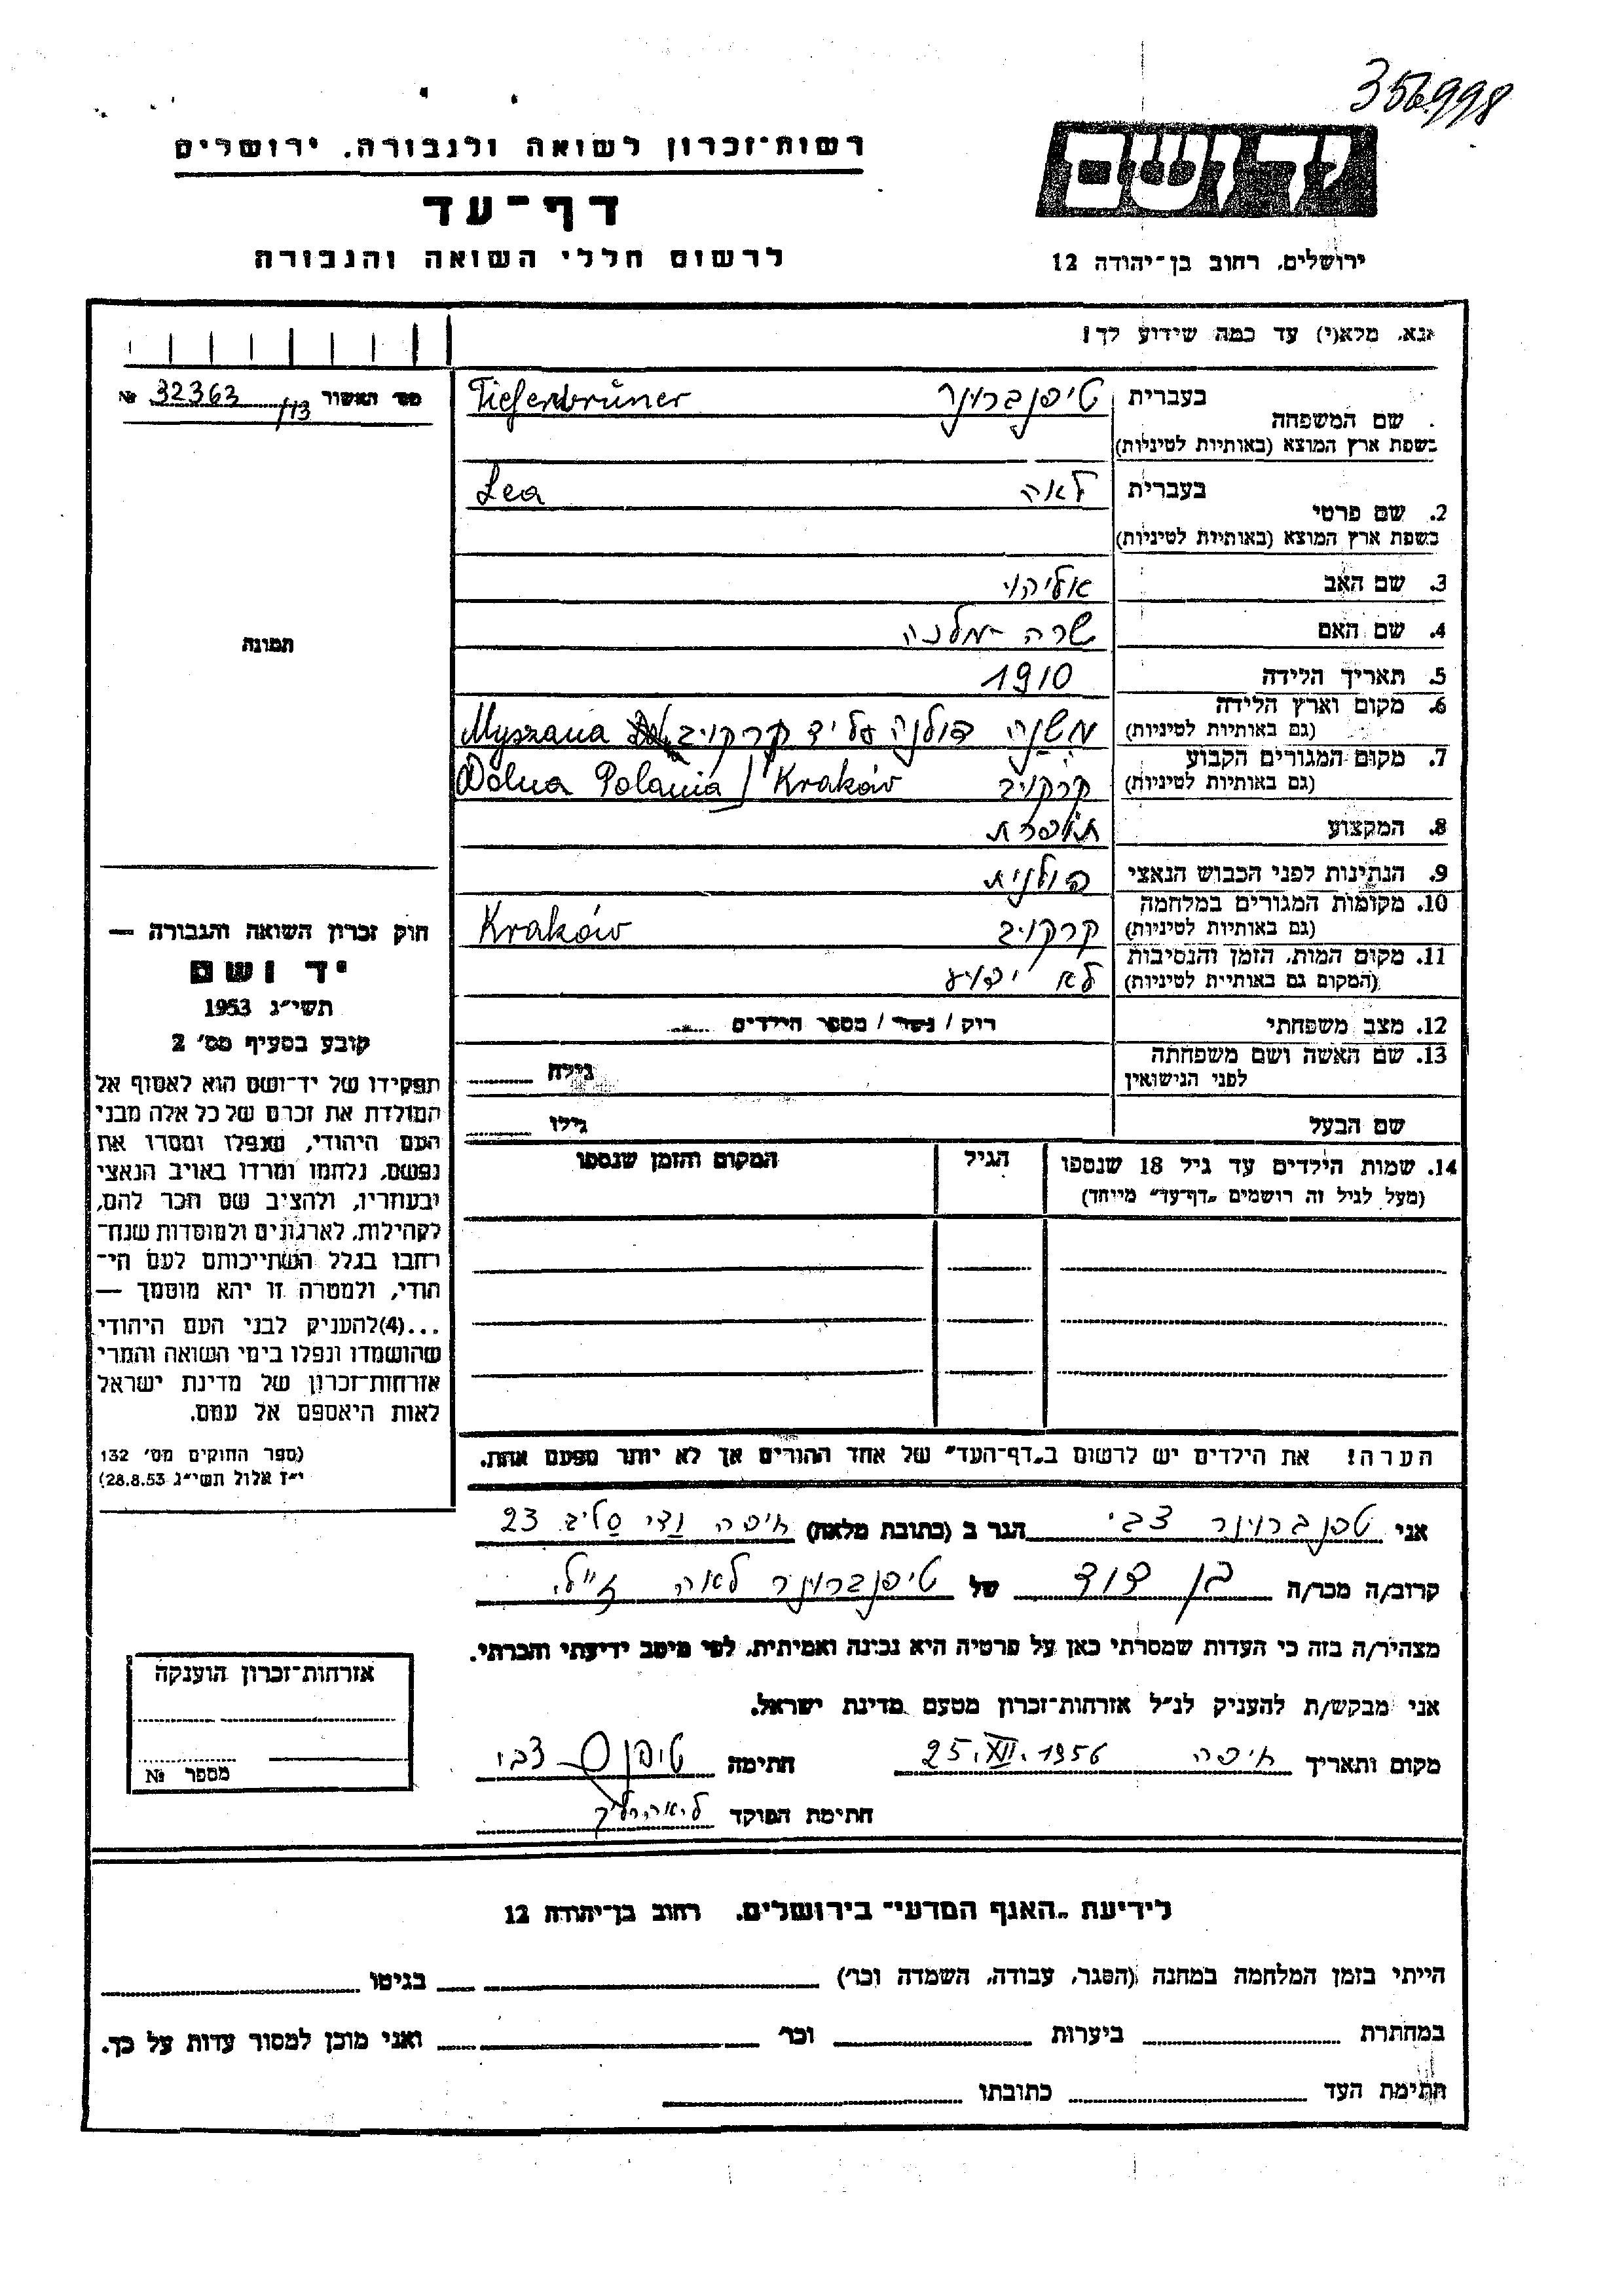 356998
רשות־זכרון לשואה ולגבורה, ירושלים
דף־עד
לרשום חללי השואה והגבורה
יד ושם
ירושלים, רחוב בן־יהודה 12
נא, מלא(י) עד כמה שידוע לך!
מס' האשור № 32363/13
תמונה
בעברית טיפנברונר Tiefenbrüner
שם המשפחה
בשפת ארץ המוצא (באותיות לטיניות)
בעברית לאה Lea
2. שם פרטי
בשפת ארץ המוצא (באותיות לטיניות)
3. שם האב אליהו
4. שם האם שרה
5. תאריך הלידה 1910
6. מקום וארץ הלידה
(גם באותיות לטיניות) משנה דולנה על יד קרקויב Myszana
7. מקום המגורים הקבוע
(גם באותיות לטיניות) קרקויב Dolna Polania / Kraków
8. המקצוע תופרת
9. הנתינות לפני הכבוש הנאצי פולנית
10. מקומות המגורים במלחמה
(גם באותיות לטיניות) קרקויב Kraków
11. מקום המות, הזמן והנסיבות
(המקום גם באותיות לטיניות) לא ידוע
12. מצב משפחתי רוק / נשוי / מספר הילדים
13. שם האשה ושם משפחתה
לפני הנישואין גילה
שם הבעל גילו
14. שמות הילדים עד גיל 18 שנספו הגיל המקום והזמן שנספו
(מעל לגיל זה רושמים „דף־עד" מייוחד)
הערה! את הילדים יש לרשום ב„דף־העד" של אחד ההורים אך לא יותר מפעם אחת.
חוק זכרון השואה והגבורה —
יד ושם
תשי"ג 1953
קובע בסעיף מס' 2
תפקידו של יד־ושם הוא לאסוף אל
המולדת את זכרם של כל אלה מבני
העם היהודי, שנפלו ומסרו את
נפשם, נלחמו ומרדו באויב הנאצי
ובעוזריו, ולהציב שם וזכר להם,
לקהילות, לארגונים ולמוסדות שנח־
רבו בגלל השתייכותם לעם הי־
הודי, ולמטרה זו יהא מוסמך —
...(4)להעניק לבני העם היהודי
שהושמדו ונפלו בימי השואה והמרי
אזרחות־זכרון של מדינת ישראל
לאות היאספם אל עמם.
(ספר החוקים מס' 132
י"ז אלול תשי"ג 28.8.53)
אני טפנברוינר צבי הגר ב (כתובת מלאה) חיפה ודי סליב 23
קרוב/ה מכר/ה בן דוד של טיפנברוינר לאה ז"ל
מצהיר/ה בזה כי העדות שמסרתי כאן על פרטיה היא נכונה ואמיתית, לפי מיטב ידיעתי והכרתי.
אני מבקש/ת להעניק לנ"ל אזרחות־זכרון מטעם מדינת ישראל.
מקום ותאריך חיפה 25.XII.1956 חתימה טיפנ צבי
חתימת הפוקד
אזרחות־זכרון הוענקה
מספר №
לידיעת „האגף המדעי" בירושלים, רחוב בן־יהודה 12
הייתי בזמן המלחמה במחנה (הסגר, עבודה, השמדה וכו') בגיטו
במחתרת ביערות וכו' ואני מוכן למסור עדות על כך.
חתימת העד כתובתו